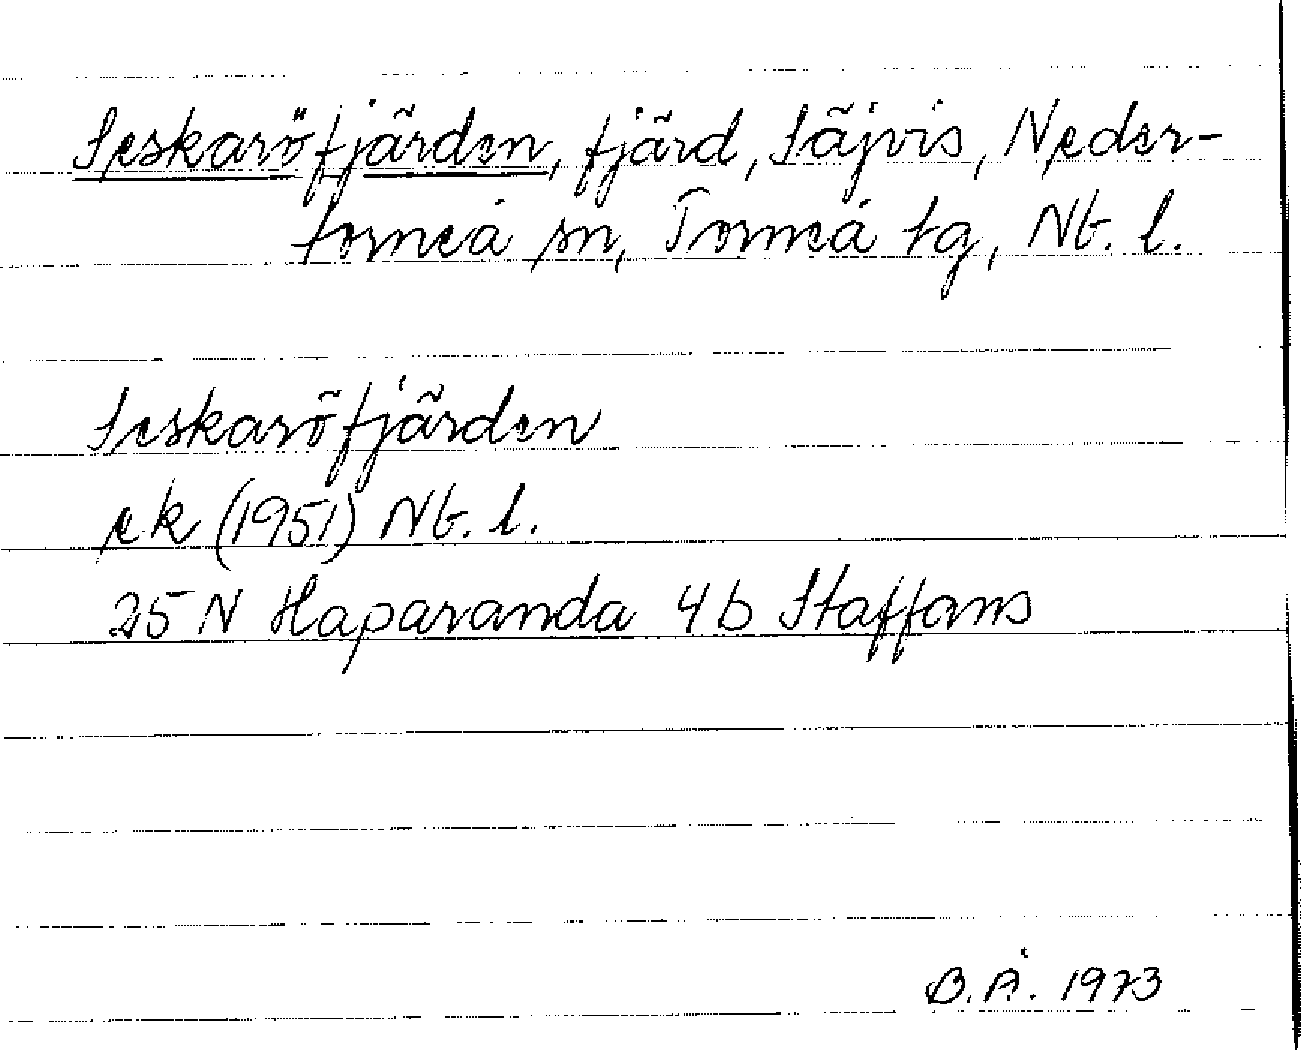 Seskaröfjärden, fjärd, Säjvis, Neder-
torneå sn, Torneå tg, Nb. l.
Seskaröfjärden
ek (1951) Nb. l.
25 N Haparanda 4 b Staffans
B.Å. 1973